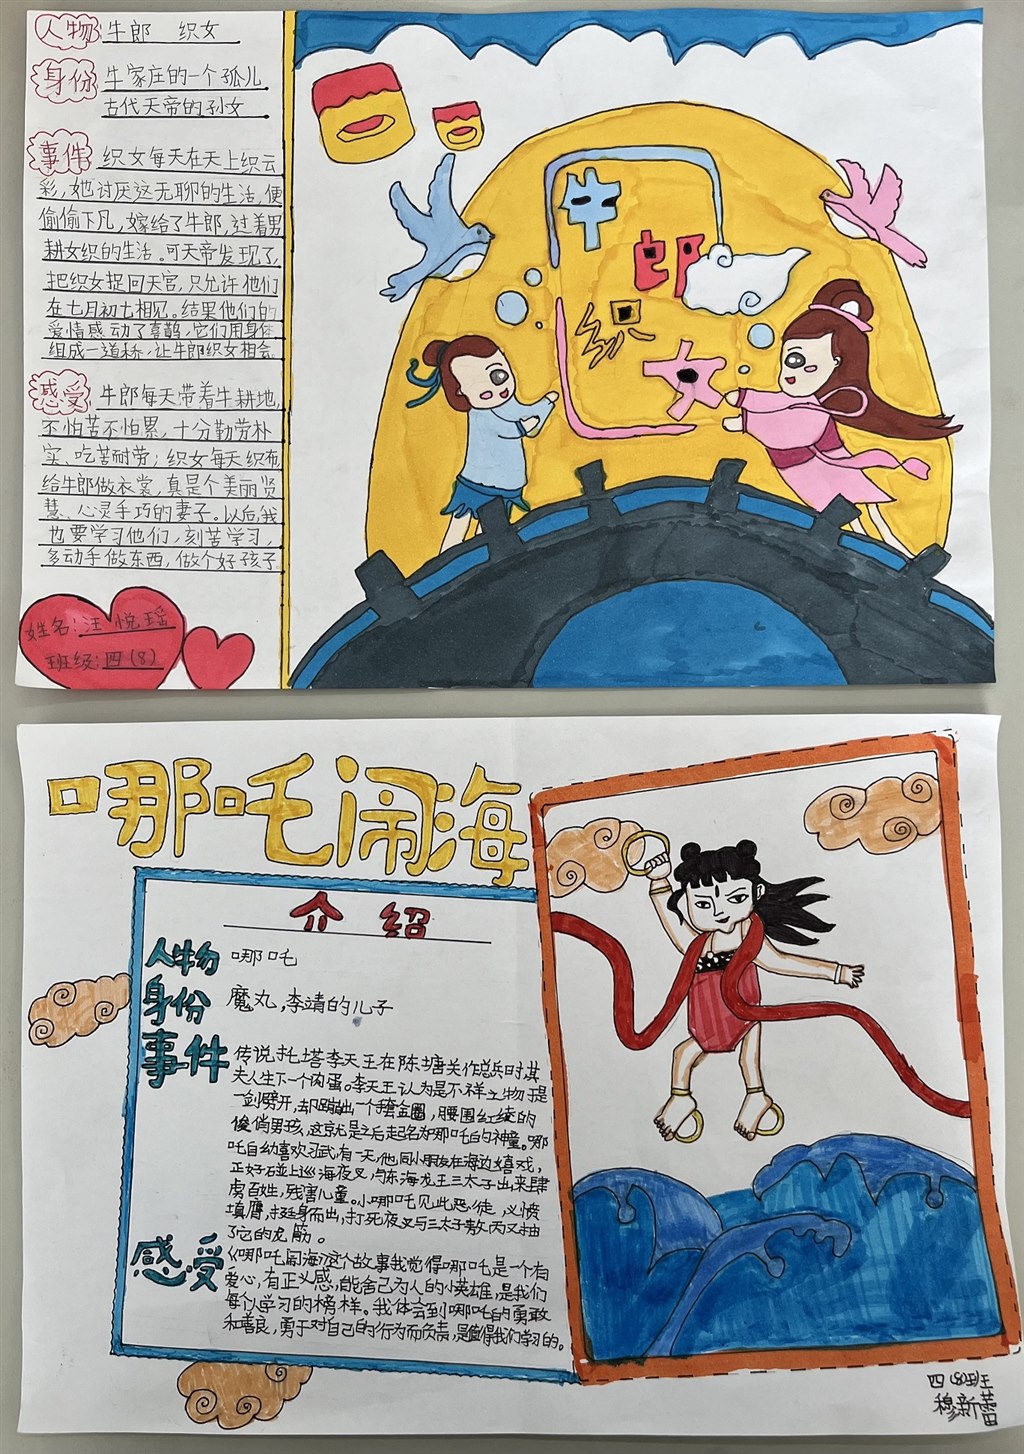 人物 牛郎 织女
身份 牛家庄的一个孤儿
古代天帝的孙女
事件 织女每天在天上织云
彩,她讨厌这无聊的生活,便
偷偷下凡,嫁给了牛郎,过着男
耕女织的生活。可天帝发现了,
把织女捉回天宫,只允许他们
在七月初七相见。结果他们的
爱情感动了喜鹊,它们用身体
组成一道桥,让牛郎织女相会
感受 牛郎每天带着牛耕地,
不怕苦不怕累,十分勤劳朴
实、吃苦耐劳;织女每天织布
给牛郎做衣裳,真是个美丽贤
慧、心灵手巧的妻子。以后我
也要学习他们,刻苦学习,
多动手做东西,做个好孩子
姓名:汪悦瑶
班级:四(8)
牛
郎
织
女
哪吒闹海
介绍
人物 哪吒
身份 魔丸,李靖的儿子
事件 传说,托塔李天王在陈塘关作总兵时其
夫人生下一个肉蛋。李天王认为是不祥之物于是
一剑劈开,却蹦出一个手套金圈,腰围红绫的
俊俏男孩,这就是之后起名为哪吒的神童。哪
吒自幼喜欢习武,有一天,他同小朋友在海边嬉戏,
正好碰上巡海夜叉与东海龙王三太子出来肆
虏百姓,残害儿童。小哪吒见此恶徒,义愤
填膺,挺身而出,打死夜叉与三太子敖丙又抽
了它的龙筋。
感受 《哪吒闹海》这个故事我觉得哪吒是一个有
爱心,有正义感,能舍己为人的小英雄,是我们
每个人学习的榜样。我体会到哪吒的勇敢
和善良,勇于对自己的行为而负责,是值得我们学习的。
四(8)班
穆新蕾